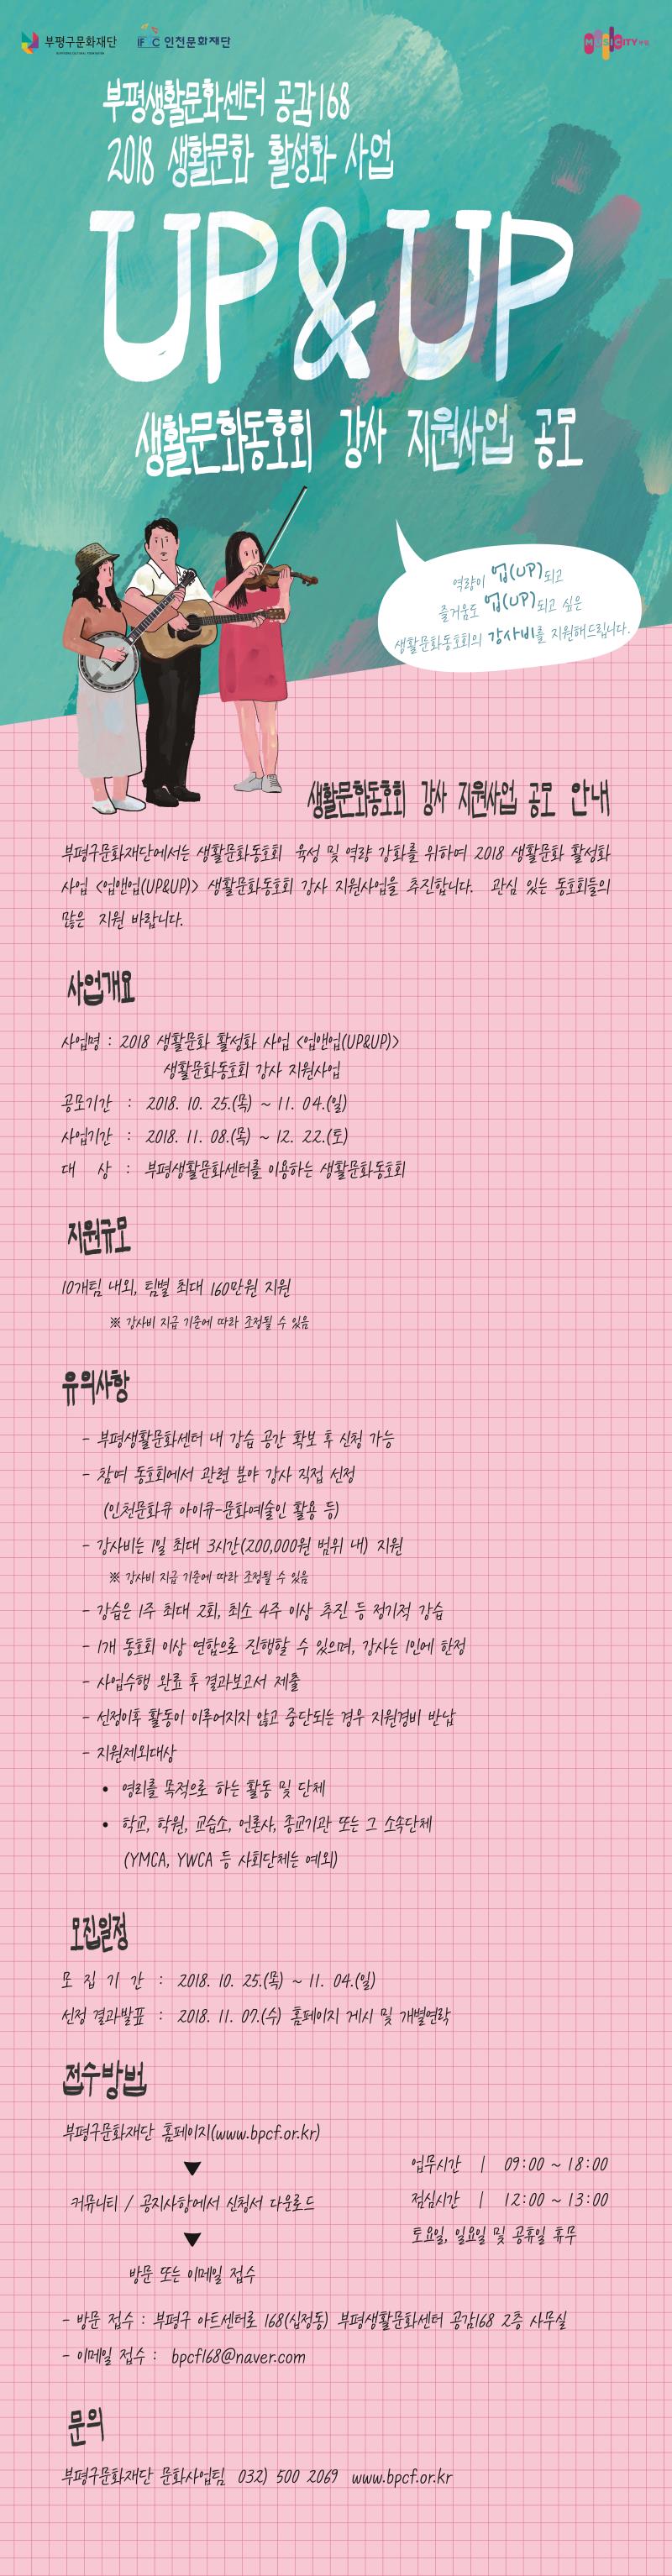 부평구문화재단
인천문화재단
부평생활문화센터 공감168
2018 생활문화 활성화 사업
UP&UP
생활문화동호회 강사 지원사업 공모
역량이 업(UP)되고
즐거움도 업(UP)되고 싶은
생활문화동호회의 강사비를 지원해드립니다.
생활문화동호회 강사 지원사업 공모 안내
부평구문화재단에서는 생활문화동호회 육성 및 역량 강화를 위하여 2018 생활문화 활성화
사업 <업앤업(UP&UP)> 생활문화동호회 강사 지원사업을 추진합니다. 관심 있는 동호회들의
많은 지원 바랍니다.
사업개요
사업명 : 2018 생활문화 활성화 사업 <업앤업(UP&UP)>
생활문화동호회 강사 지원사업
공모기간 : 2018. 10. 25.(목) ~ 11. 04.(일)
사업기간 : 2018. 11. 08.(목) ~ 12. 22.(토)
대 상 : 부평생활문화센터를 이용하는 생활문화동호회
지원규모
10개팀 내외, 팀별 최대 160만원 지원
※ 강사비 지급 기준에 따라 조정될 수 있음
유의사항
- 부평생활문화센터 내 강습 공간 확보 후 신청 가능
- 참여 동호회에서 관련 분야 강사 직접 선정
(인천문화큐 아이큐-문화예술인 활용 등)
- 강사비는 1일 최대 3시간(200,000원 범위 내) 지원
※ 강사비 지급 기준에 따라 조정될 수 있음
- 강습은 1주 최대 2회, 최소 4주 이상 추진 등 정기적 강습
- 1개 동호회 이상 연합으로 진행할 수 있으며, 강사는 1인에 한정
- 사업수행 완료 후 결과보고서 제출
- 선정이후 활동이 이루어지지 않고 중단되는 경우 지원경비 반납
- 지원제외대상
• 영리를 목적으로 하는 활동 및 단체
• 학교, 학원, 교습소, 언론사, 종교기관 또는 그 소속단체
(YMCA, YWCA 등 사회단체는 예외)
모집일정
모 집 기 간 : 2018. 10. 25.(목) ~ 11. 04.(일)
선정 결과발표 : 2018. 11. 07.(수) 홈페이지 게시 및 개별연락
접수방법
부평구문화재단 홈페이지(www.bpcf.or.kr)
▼
커뮤니티 / 공지사항에서 신청서 다운로드
▼
방문 또는 이메일 접수
업무시간 | 09:00 ~ 18:00
점심시간 | 12:00 ~ 13:00
토요일, 일요일 및 공휴일 휴무
- 방문 접수 : 부평구 아트센터로 168(십정동) 부평생활문화센터 공감168 2층 사무실
- 이메일 접수 : bpcf168@naver.com
문의
부평구문화재단 문화사업팀 032) 500 2069 www.bpcf.or.kr